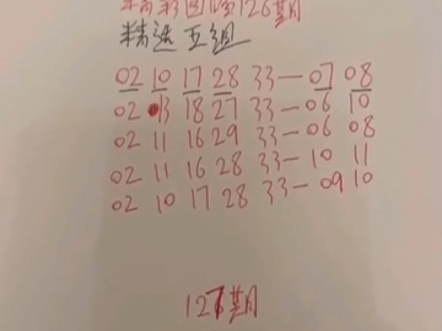 精彩回顾126期
精选五组
02 10 17 28 33—07 08
02 13 18 27 33—06 10
02 11 16 29 33—06 08
02 11 16 28 33—10 11
02 10 17 28 33—09 10
127期